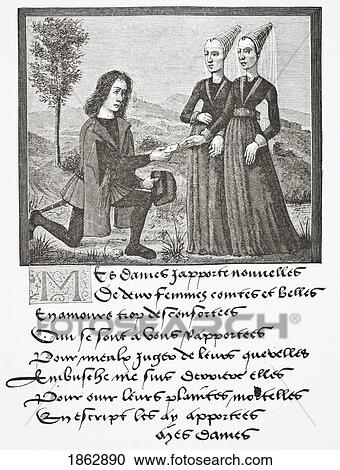 Mes dames Japporte nouvelles
De deux femmes comtes et belles
En amours trop desconfortees
Qui se sont a vous Rapportees
Pour mieulx Juger de leurs querelles
Embusche me suis derriere elles
Pour ouir leurs plaintes mortelles
En escript les ay apportees
Mes dames
fotosearch
1862890 www.fotosearch.com